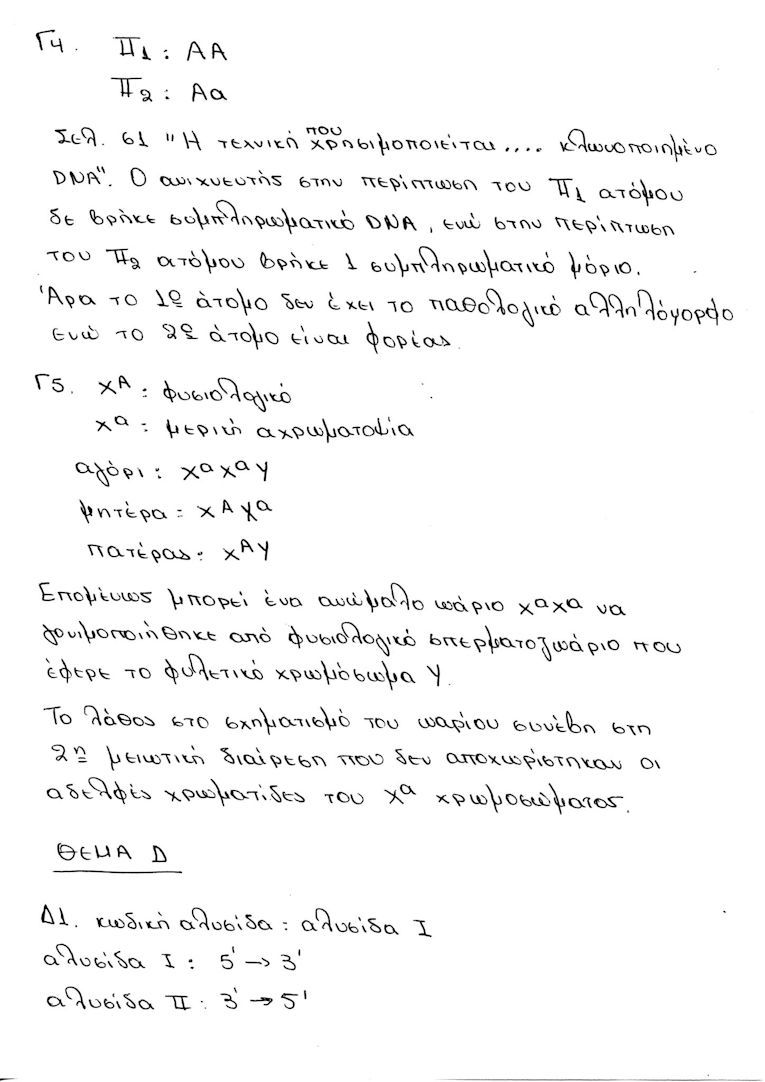 Γ4. II1 : AA
II2 : Aa
Σελ. 61 "Η τεχνική που χρησιμοποιείται.... κλωνοποιημένο
DNA". Ο ανιχνευτής στην περίπτωση του II1 ατόμου
δε βρήκε συμπληρωματικό DNA, ενώ στην περίπτωση
του II2 ατόμου βρήκε 1 συμπληρωματικό μόριο.
Άρα το 1ο άτομο δεν έχει το παθολογικό αλληλόγορφο
ενώ το 2ο άτομο είναι φορέας.
Γ5. XA : φυσιολογικό
Xα : μερική αχρωματοψία
αγόρι : XαXαY
μητέρα : XAXα
πατέρας : XAY
Επομένως μπορεί ένα ανώμαλο ωάριο XαXα να
γονιμοποιήθηκε από φυσιολογικό σπερματοζωάριο που
έφερε το φυλετικό χρωμόσωμα Y.
Το λάθος στο σχηματισμό του ωαρίου συνέβη στη
2η μειωτική διαίρεση που δεν αποχωρίστηκαν οι
αδελφές χρωματίδες του Xα χρωμοσώματος.
ΘΕΜΑ Δ
Δ1. κωδική αλυσίδα : αλυσίδα I
αλυσίδα I : 5' → 3'
αλυσίδα II : 3' → 5'